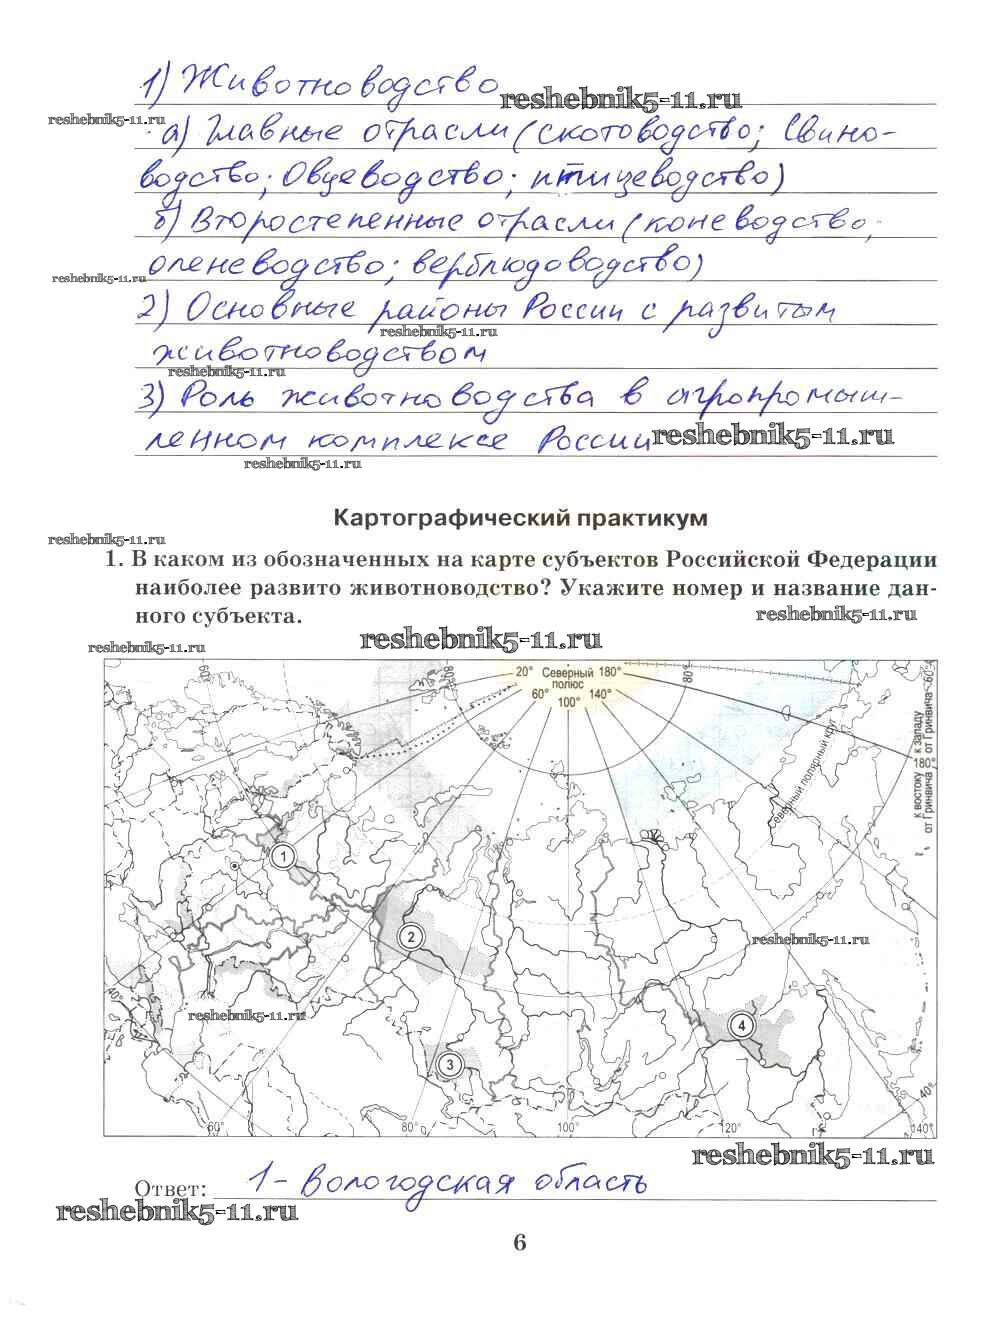 1) Животноводство
reshebnik5-11.ru
reshebnik5-11.ru
а) Главные отрасли (скотоводство; свино-
водство; овцеводство; птицеводство)
б) Второстепенные отрасли (коневодство;
оленеводство; верблюдоводство)
reshebnik5-11.ru
2) Основные районы России с развитым
reshebnik5-11.ru
животноводством
reshebnik5-11.ru
3) Роль животноводства в агропромыш-
ленном комплексе России
reshebnik5-11.ru
reshebnik5-11.ru
Картографический практикум
reshebnik5-11.ru
1. В каком из обозначенных на карте субъектов Российской Федерации
наиболее развито животноводство? Укажите номер и название дан-
ного субъекта.
reshebnik5-11.ru
reshebnik5-11.ru
reshebnik5-11.ru
60°
80°
20° Северный 180°
полюс
60° 140°
100°
80°
60°
к западу
от Гринвича
180°
к востоку
от Гринвича
Северный полярный круг
1
2
reshebnik5-11.ru
40°
reshebnik5-11.ru
4
3
40°
60°
80°
100°
120°
140°
reshebnik5-11.ru
Ответ: 1 - Вологодская область
reshebnik5-11.ru
6